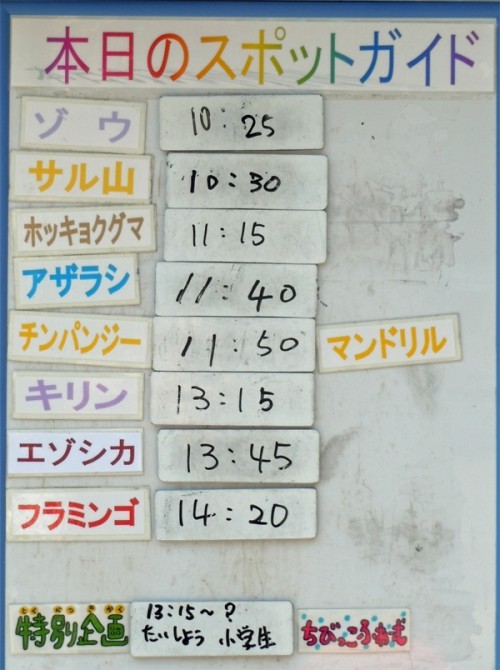 本日のスポットガイド
ゾウ 10:25
サル山 10:30
ホッキョクグマ 11:15
アザラシ 11:40
チンパンジー 11:50 マンドリル
キリン 13:15
エゾシカ 13:45
フラミンゴ 14:20
とくべつきかく
特別企画 13:15~? ちびっこふれあい
たいしょう 小学生